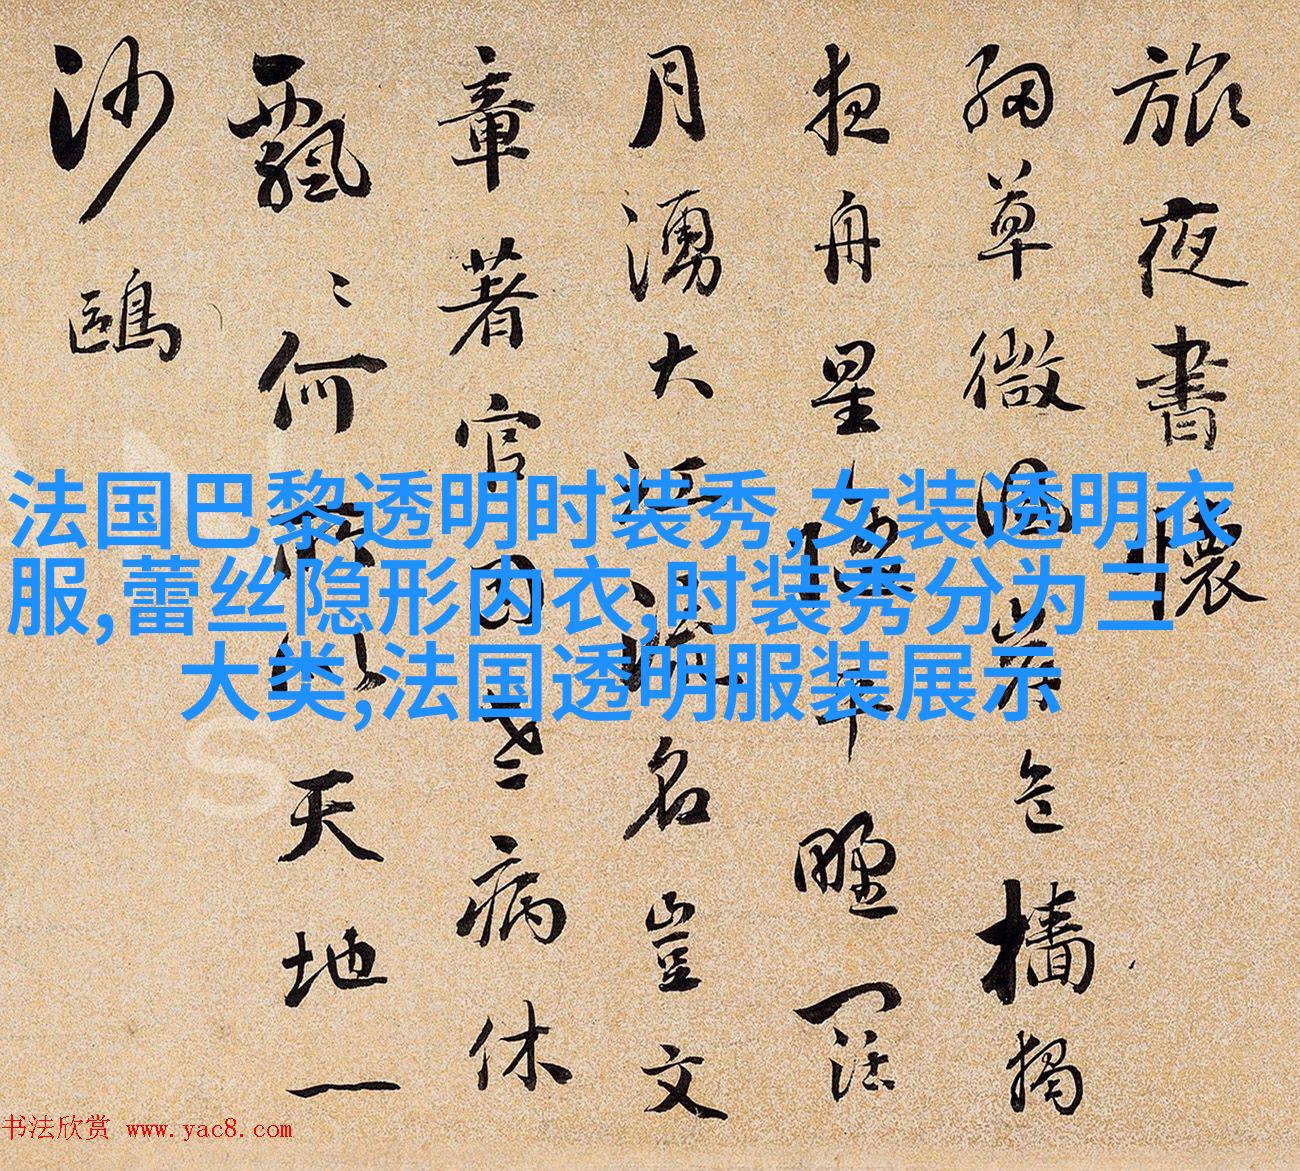 旅夜書懷
細草微風岸危檣獨
夜舟星隨平野闊
月湧大江流名豈文
章著官因老病休
飄〻何所似天地一
沙鷗
法国巴黎透明时装秀,女装透明衣
服,蕾丝隐形内衣,时装秀分为三
大类,法国透明服装展示
书法欣赏 www.yac8.com